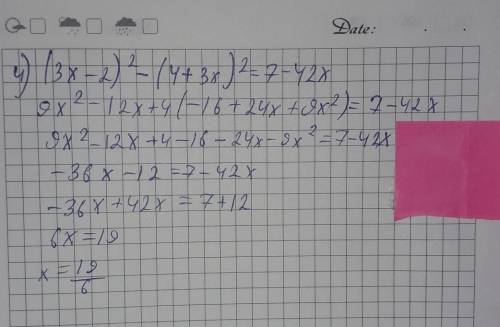 Date:
4) (3x-2)²-(4+3x)²=7-42x
9x²-12x+4(-16+24x+9x²)=7-42x
9x²-12x+4-16-24x-9x²=7-42x
-36x-12=7-42x
-36x+42x=7+12
6x=19
x=19/6